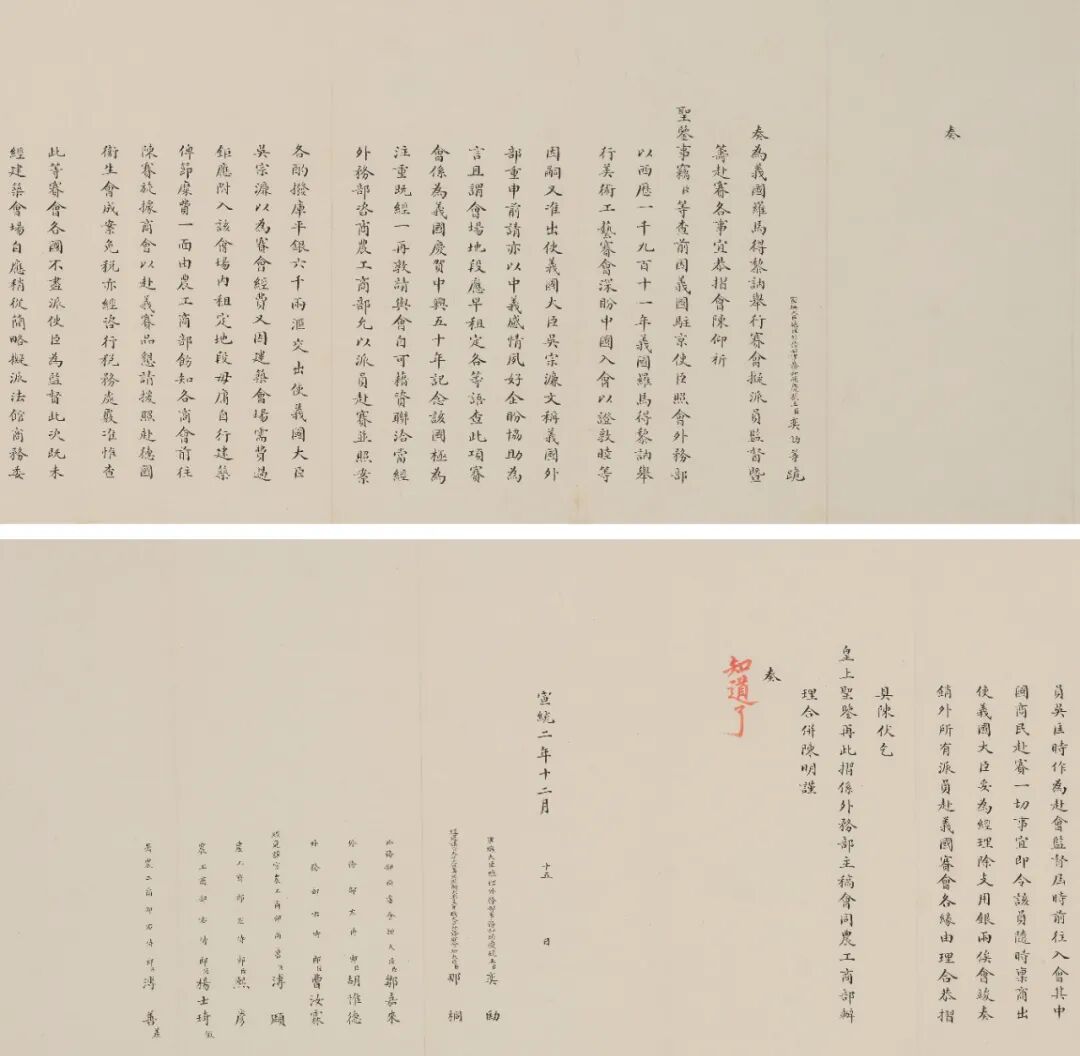 奏
奕劻等跪
奏為義國羅馬得黎訥舉行賽會擬派員監督暨
籌赴賽各事宜恭摺會陳仰祈
聖鑒事竊臣等查前因義國駐京使臣照會外務部
以西歷一千九百十一年義國羅馬得黎訥舉
行美術工藝賽會深盼中國入會以證敦睦等
因嗣又准出使義國大臣吳宗濂文稱義國外
部重申前請亦以中義感情夙好企盼協助為
言且謂會場地段應早租定各等語查此項賽
會係為義國慶賀中興五十年記念該國極為
注重既經一再敦請與會自可藉資聯洽當經
外務部咨商農工商部允以派員赴賽並照案
各酌撥庫平銀六千兩滙交出使義國大臣
吳宗濂以為賽會經費又因建築會場需費過
鉅應附入該會場內租定地段毋庸自行建築
俾節糜費一面由農工商部飭知各商會前往
陳賽旋據商會以赴義賽品懇請援照赴德國
衛生會成案免稅亦經咨行稅務處覈准惟查
此等賽會各國不盡派使臣為監督此次既未
經建築會場自應稍從簡略擬派法館商務委
員吳匡時作為赴會監督屆時前往入會其中
國商民赴賽一切事宜即令該員隨時稟商出
使義國大臣妥為經理除支用銀兩俟會竣奏
銷外所有派員赴義國賽會各緣由理合恭摺
具陳伏乞
皇上聖鑒再此摺係外務部主稿會同農工商部辦
理合併陳明謹
奏
知道了
宣統二年十二月 十五 日
奕劻
那桐
鄒嘉來
胡惟德
曹汝霖
溥頲
農工商部左侍郎臣熙彥
農工商部右侍郎臣楊士琦
署農工商部右侍郎臣溥善